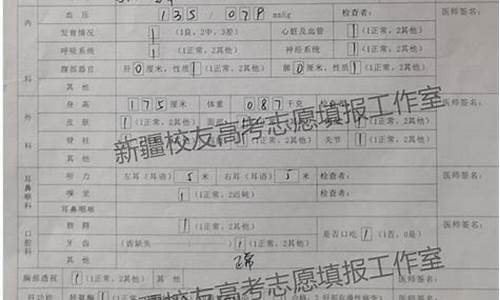 内科 血压 135/079 mmHg 检查者: 医师签名:
发育情况 1 (1良, 2中, 3差) 心脏及血管 1 (1正常, 2其他)
呼吸系统 1 (1正常, 2其他) 神经系统 1 (1正常, 2其他)
腹部器官 肝 0 厘米, 性质 1 (1正常, 2其他) 脾 0 厘米, 性质 1 (1正常, 2其他)
其他
外科 身高 175 厘米 体重 087 千克 医师签名:
皮肤 1 (1正常, 2其他) 面部 (1正常, 2其他)
脊柱 关节 1 (1正常, 2其他)
其他
耳鼻喉科 听力 左耳(耳语) 5 米 右耳(耳语) 5 米 检查者: 医师签名:
嗅觉 1 (1正常, 2迟钝) 检查者:
耳鼻咽喉
口腔科 唇腭 1 (1正常, 2其他) 是否口吃 1 (1否, 0是) 医师签名:
牙齿 (齿缺失 1 (1正常, 2其他)
其他 正常
胸部透视 1 (1正常, 2其他) 其他 医师签名:
肝功能 转氨酶
新疆校友高考志愿填报工作室
新疆校友高考志愿填报工作室